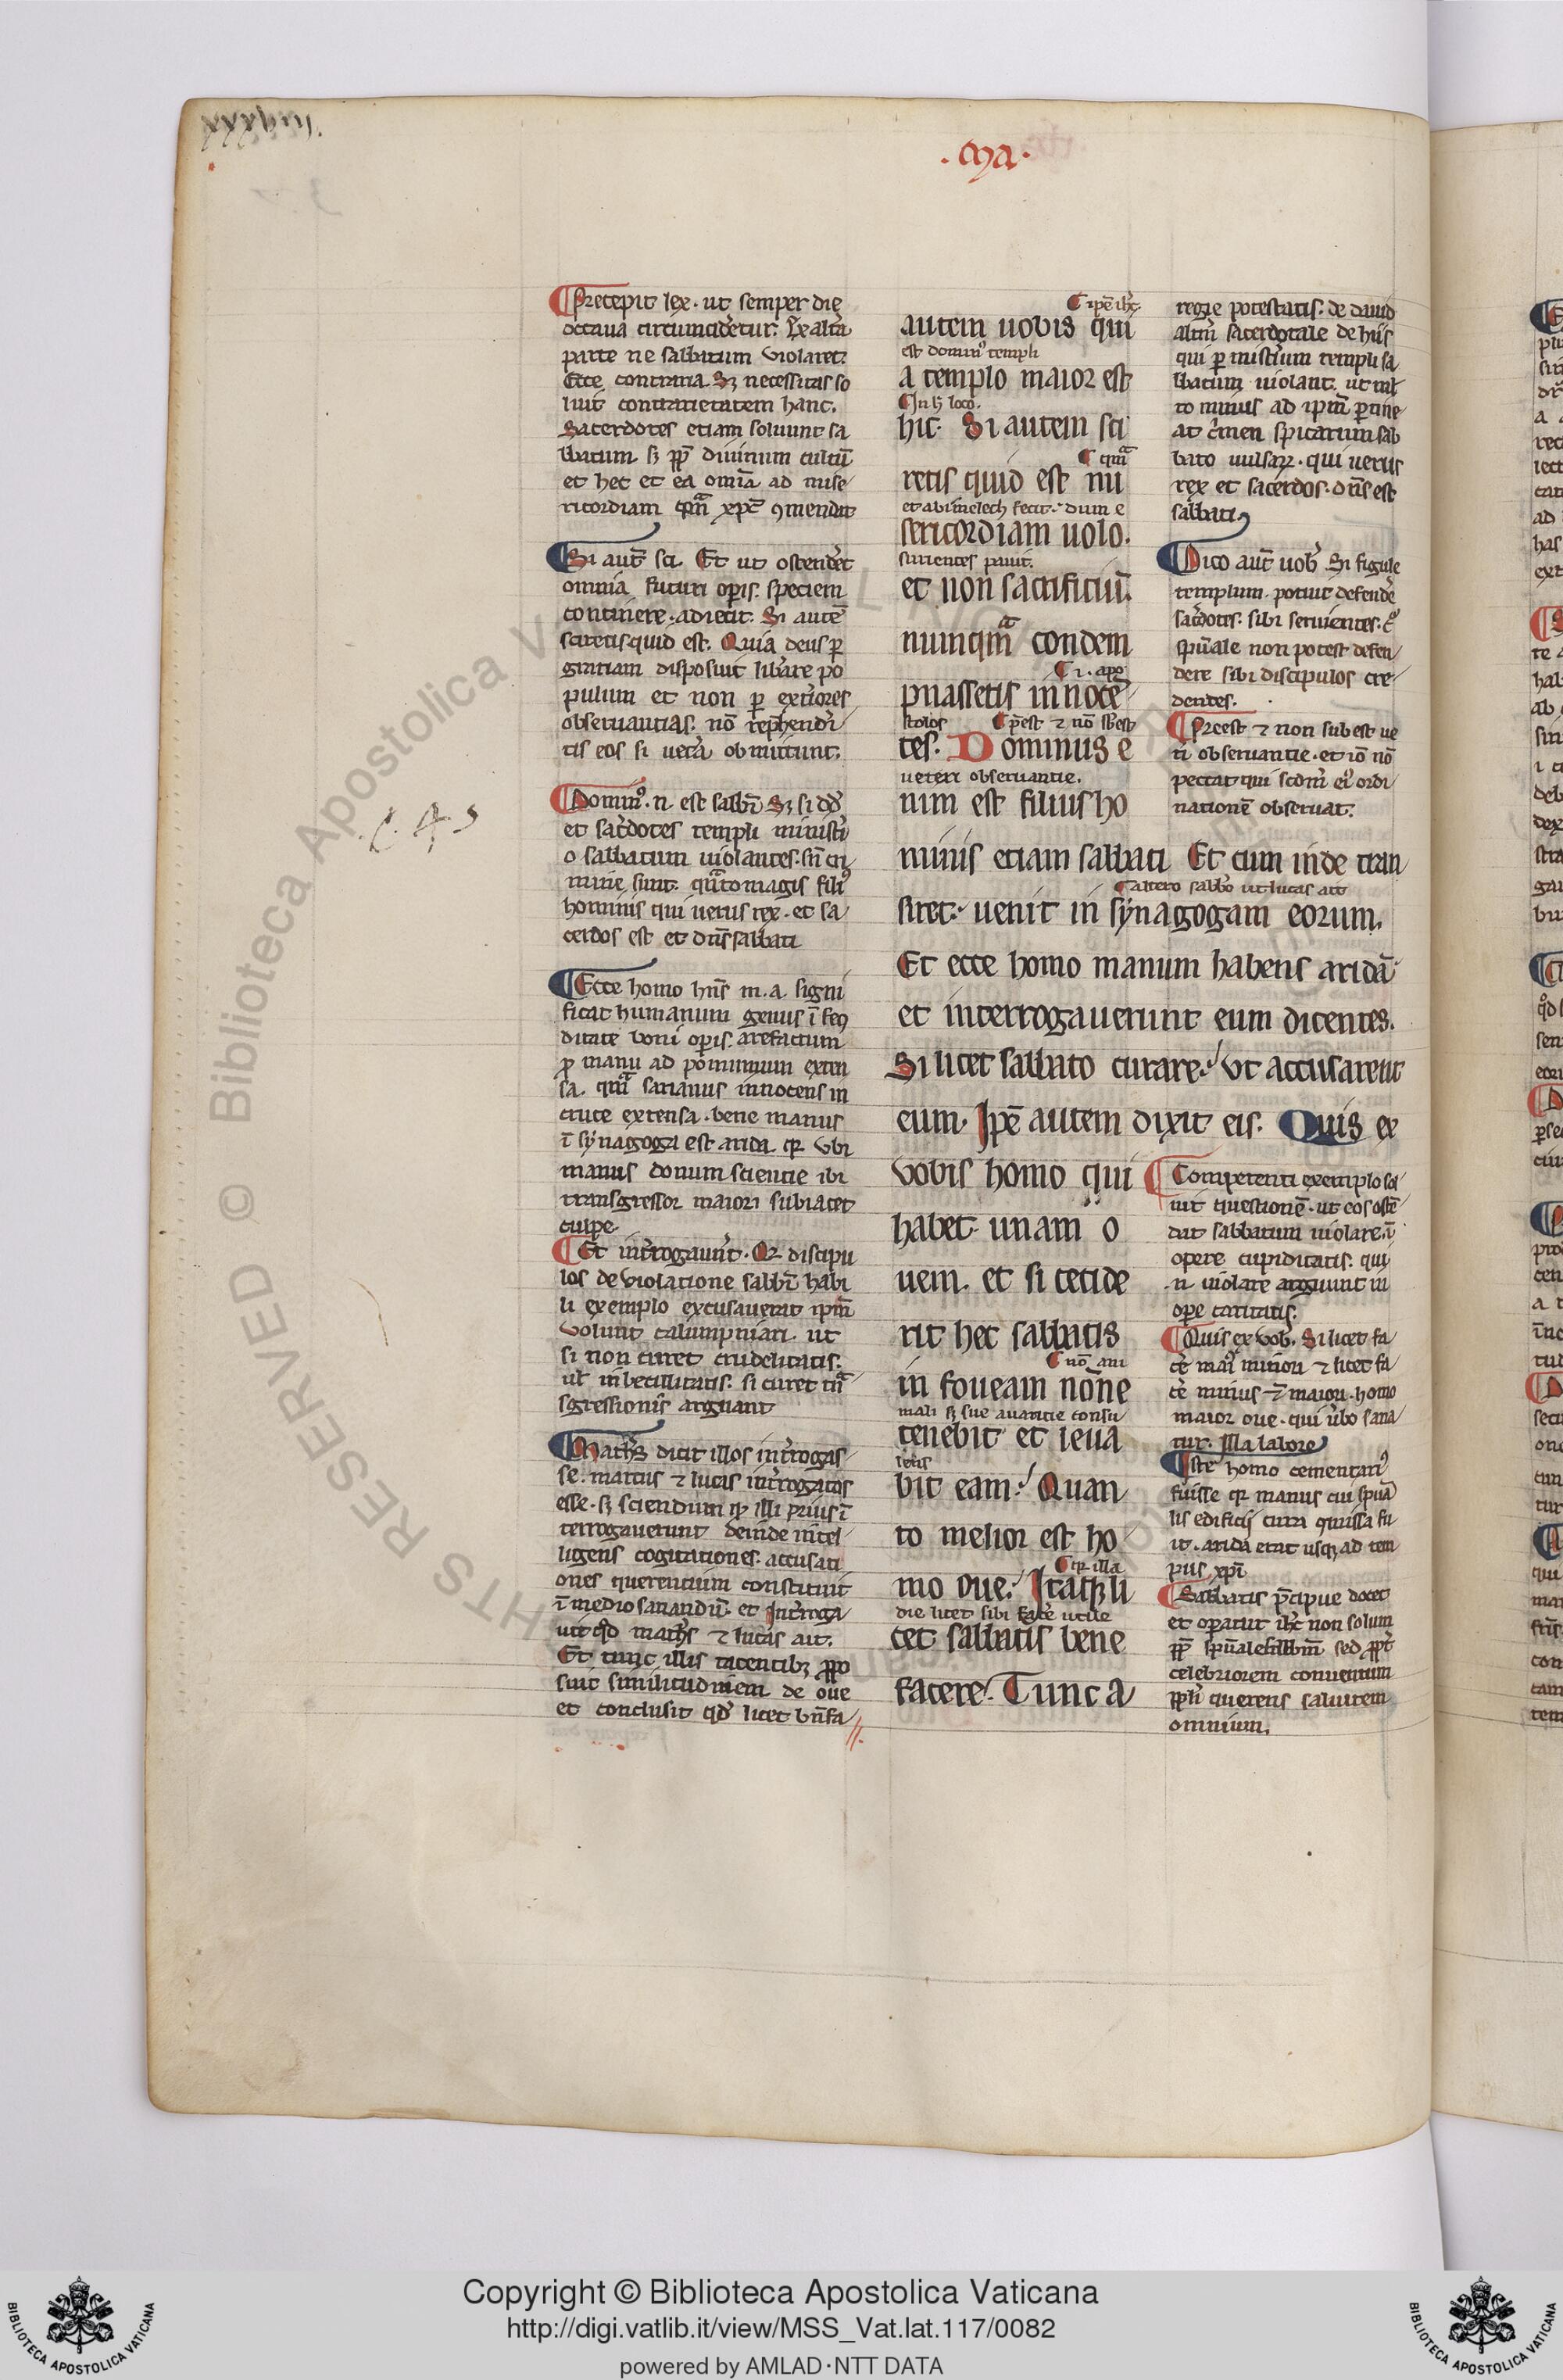 xxxviiij.
.Ma.
¶Precepit lex. ut semper die
octaua circumcid̾etur. Ex alt̾a
parte ne sabbatum violaret̾.
Ecce contraria. Sꝫ necessitas so
luit contrarietatem hanc.
Sacerdotes etiam soluunt sa
bbatum sꝫ ꝓp̄ diuinum cultū
et hec et ea omīa ad mise
ricordiam qm̄ xp̄c ꝯmendat
¶Si aut̄ sci. Et ut ostend̾et
omnia futuri op̾is. speciem
continere. adiecit. Si autē
sciretis quid est. Quia deus ꝑ
gratiam disposuit lib̾are po
pulum et non ꝑ ext̾iores
obseruantias. nō rep̾hend̾e
tis eos si uet̾a obmittunt.
¶Domin᷒. n est sabbī Sꝫ si dd̾
et sac̾dotes templi minist̾i
o sabbatum uiolantes. sn̄ cri
mine sunt. qͣnto magis fili᷒
hominis qui uerus rex. et sa
cerdos est et dn̄s sabbati
¶Ecce homo hn̄s m. a. signi
ficat humanum genus ī fecū
ditate boni op̾is. arefactum
ꝓ manu ad pomum exten
sa. qm̄ sanauit innocens in
cruce extensa. bene manus
ī synagoga est arida. qꝛ vbi
manus donum scientie ibi
transgressor maiori subiacet
culpe.
¶Et int̾rogauūt. Qꝛ discipu
los de violatione sabbī habi
li exemplo excusauerat ipm̄
volunt calumpniari. ut
si non curet crudelitatis.
ul̾ inbecillitatis. si curet trͣn
sgressionis arguant
¶Math̾s dicit illos int̾rogas
se. marcus ⁊ lucas int̾rogatos
esse. sꝫ sciendum qꝫ illi prius ī
terrogauerunt deinde intel
ligens cogitationes. accusati
ones querentium constituit
ī medio sanandū. et int̾roga
uit qd̾ marcus ⁊ lucas ait.
Et tunc illis tacentibꝫ ꝓpo
suit similitudinem de oue
et conclusit qd̾ licet bn̄ fa
.c. 4 5
¶ ipē ih̄c
autem uobis qui
est domin᷒ templi
a templo maior est
¶In h̾ loco.
hic. Si autem sci
¶ qm̄
retis quid est mi
et abimelech fecit. dum e
sericordiam uolo.
surientes pauit.
et non sacrificiū.
nunqm̄ condem
¶ .i. apo
pnassetis innocē
stolos ¶ p̄est ⁊ nō sb̄est
tes. Dominus e
ueteri obseruantie.
nim est filius ho
minis etiam sabbati Et cum inde tran
¶ altero sabbo ut lucas ait
siret. uenit in synagogam eorum.
Et ecce homo manum habens aridā
et interrogauerunt eum dicentes.
Si licet sabbato curare. Vt accusarent
eum. Ipē autem dixit eis. Quis ex
vobis homo qui
habet unam o
uem. et si cecide
rit hec sabbatis
¶ nō ani
in foueam nōne
mali sꝫ sue auaritie consu
tenebit et leua
lens
bit eam. Quan
to melior est ho
¶ qꝛ illa
mo oue. Itaqꝫ li
die licet sibi fac̾e utile
cet sabbatis bene
facere. Tunc a
regie potestatis. de dauid
altm̄ sacerdotale de hiis
qui ꝑ minist̾ium templi sa
bbatum uiolant. ut mul
to minus ad ipm̄ ꝑtine
at c̾men spicarum sab
bato uulsaꝝ. qui uerus
rex et sacerdos. dn̄s est
sabbati
¶Dico aut̄ uob̾. Si figule
templum. potuit defend̾e
sac̾dotes. sibi seruientes.
spūale non potest defen
dere sibi discipulos cre
dentes.
¶Preest ⁊ non subest ue
ti obseruantie. et iō nō
peccat qui scdm̄ ei᷒ ordi
nationē obseruat.
¶Competenti exemplo sol
uit questionē. ut eos oste
dat sabbatum uiolare. ī
opere cupiditatis. qui
.n uiolare arguunt in
op̾e caritatis.
¶Quis ex vob̾. Si licet fa
c̾e mai᷒ minori ⁊ licet fa
c̾e minus ⁊ maiori. homo
maior oue. qui u̾bo sana
tur. Illa labore
¶Iste homo cementari᷒
fuisse qꝛ manus cui spūa
lis edificij cura qm̄issa fu
it. arida erat usqꝫ ad tem
pus xpī
¶Sabbatis p̄cipue docet
et operatur ih̄c non solum
ꝓp̄ spūale sabbm̄ sed ꝓpt̾
celebriorem conuentum
ppl̾i querens salutem
omnium.
Copyright © Biblioteca Apostolica Vaticana
http://digi.vatlib.it/view/MSS_Vat.lat.117/0082
powered by AMLAD·NTT DATA
BIBLIOTECA APOSTOLICA VATICANA
BIBLIOTECA APOSTOLICA VATICANA